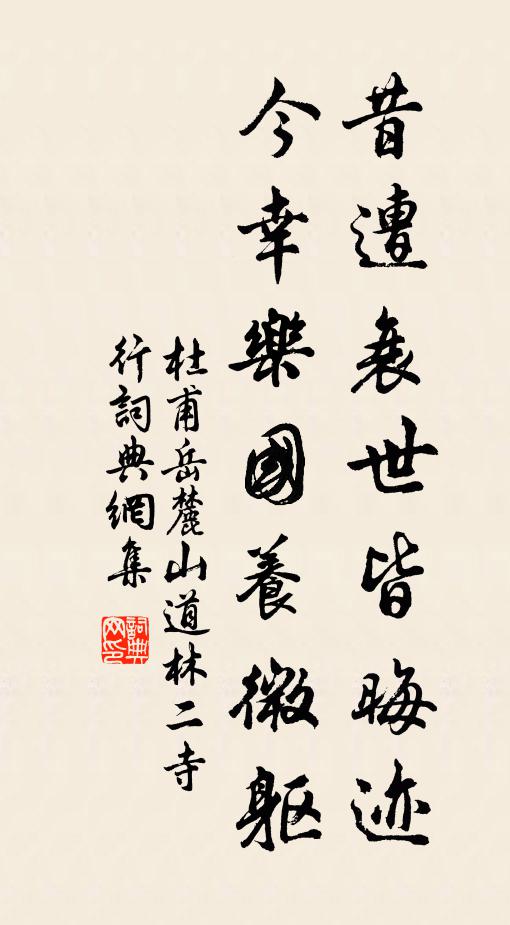 昔遭衰世皆晦迹
今幸樂國養微軀
杜甫岳麓山道林二寺
行詞典網集
詞典网印